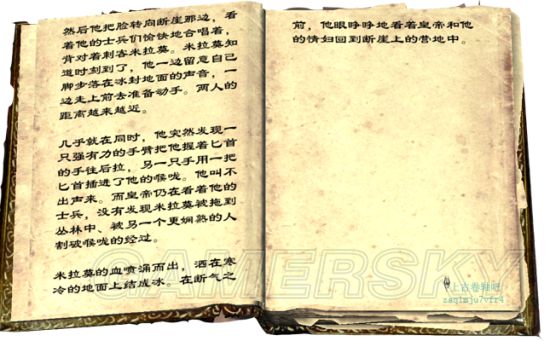 然后他把脸转向断崖那边，看
着他的士兵们愉快地合唱着，
背对着刺客米拉莫。米拉莫知
道时刻到了，他一边留意自己
脚步落在冰封地面的声音，一
边走上前去准备动手。两人的
距离越来越近。
几乎就在同时，他突然发现一
只强有力的手臂把他握着匕首
的手往后拉，另一只手用一把
匕首插进了他的喉咙。他叫不
出声来。而皇帝仍在看着他的
士兵，没有发现米拉莫被拖到
丛林中、被另一个更娴熟的人
割破喉咙的经过。
米拉莫的血喷涌而出，洒在寒
冷的地面上结成冰。在断气之
前，他眼睁睁地看着皇帝和他
的情妇回到断崖上的营地中。
GAMERSKY
上古卷轴吧
zaq1mju7vfr4